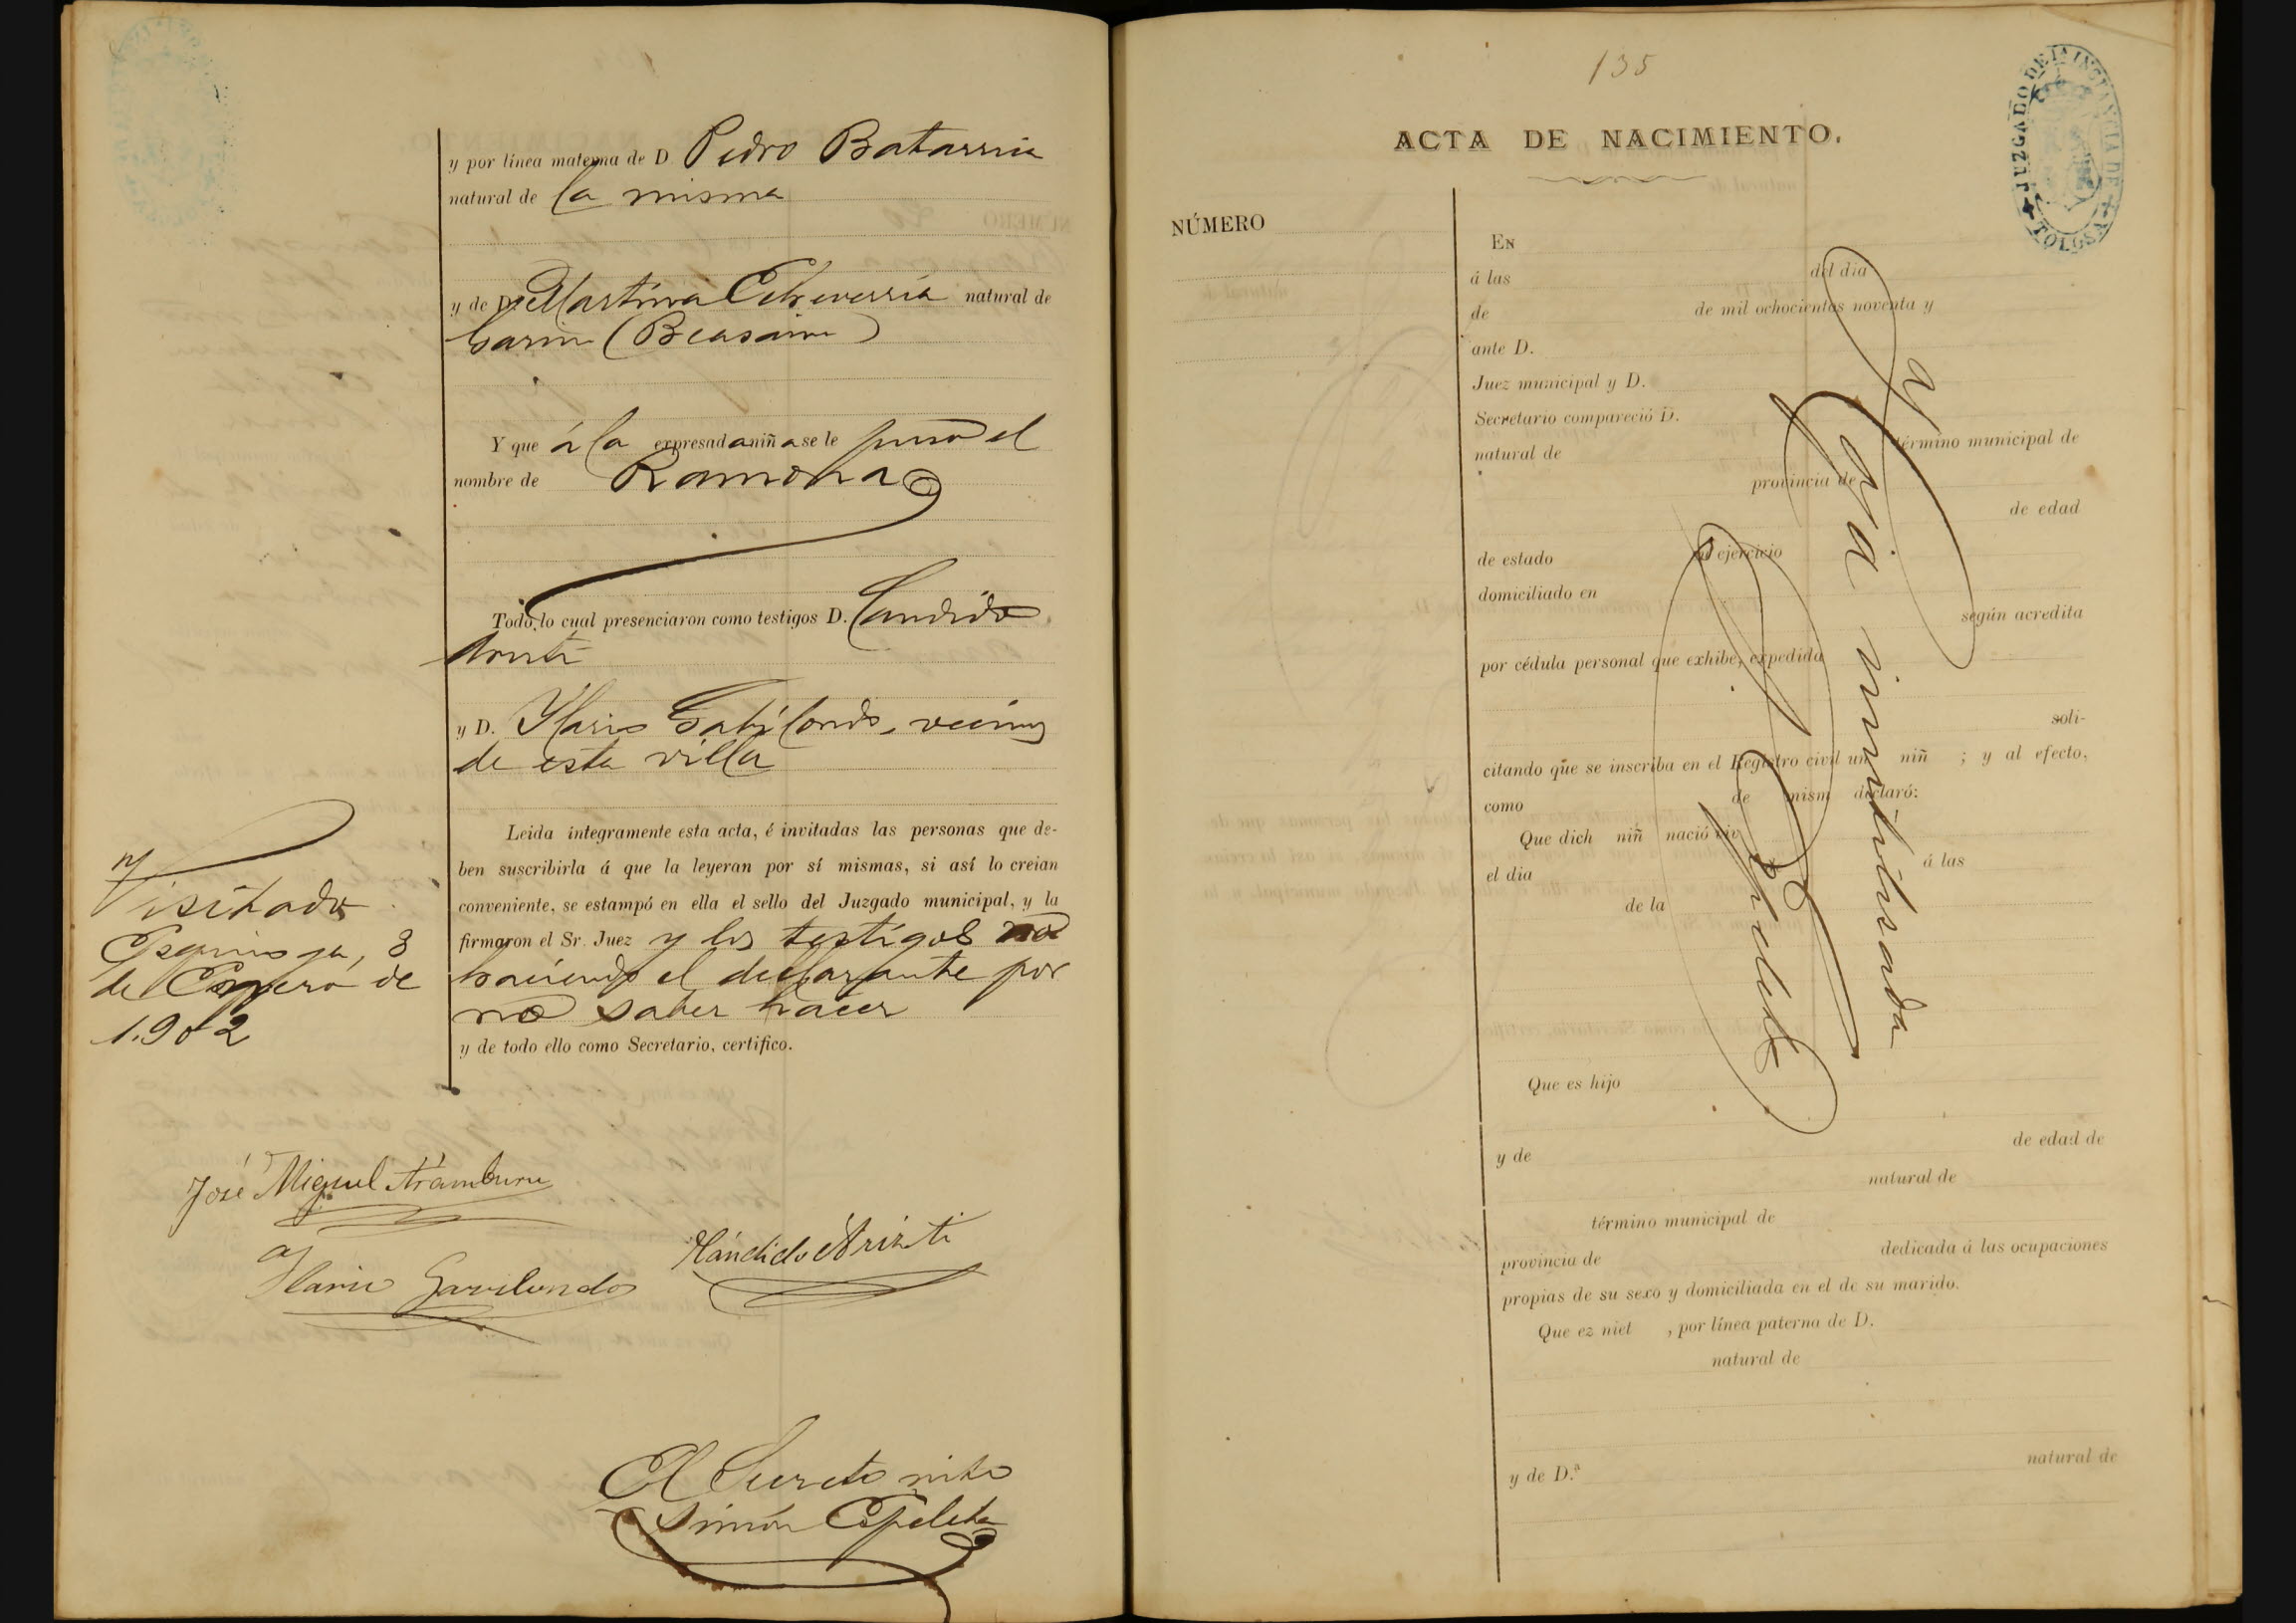 y por línea materna de D. Pedro Batarrita
natural de la misma
y de D.ª Martina Echeverria natural de
Garin (Beasain)
Y que á la expresada niña se le puso el
nombre de Ramona
Todo lo cual presenciaron como testigos D. Candido
Arruti
y D. Ylario Gabilondo, vecinos
de esta villa
Leida íntegramente esta acta, é invitadas las personas que de-
ben suscribirla á que la leyeran por sí mismas, si así lo creian
conveniente, se estampó en ella el sello del Juzgado municipal, y la
firmaron el Sr. Juez y los testigos no
haciendo el declarante por
no saber hacer
y de todo ello como Secretario, certifico.
Visitado
Ezquioga, 3
de Enero de
1.902
José Miguel Aramburu
Cándido Arruti
Ilario Gavilondo
El Secretario
Simón Espeleta
135
JUZGADO DE 1ª INSTANCIA DE TOLOSA
ACTA DE NACIMIENTO.
NÚMERO
EN
á las del dia
de de mil ochocientos noventa y
ante D.
Juez municipal y D.
Secretario compareció D.
natural de término municipal de
provincia de
de edad
de estado su ejercicio
domiciliado en
según acredita
por cédula personal que exhibe, expedida
soli-
citando que se inscriba en el Registro civil un niñ ; y al efecto,
como de mism declaró:
Que dich niñ nació viv
el dia á las
de la
Que es hijo
de edad de
y de
natural de
término municipal de
provincia de dedicada á las ocupaciones
propias de su sexo y domiciliada en el de su marido.
Que ez niet , por línea paterno de D.
natural de
y de D.ª natural de
Hoja inutilizada
Espeleta